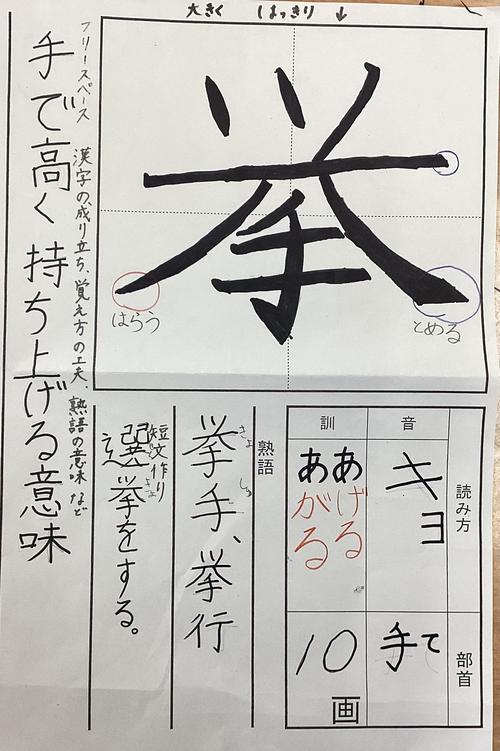 大きく はっきり ↓
挙
はらう
とめる
読み方
音
キョ
訓
あげる
あがる
部首
手 て
10画
熟語
挙手、挙行
きょ しゅ
短文作り
選挙をする。
せん きょ
フリースペース 漢字の成り立ち、覚え方の工夫、熟語の意味 など
手で高く持ち上げる意味